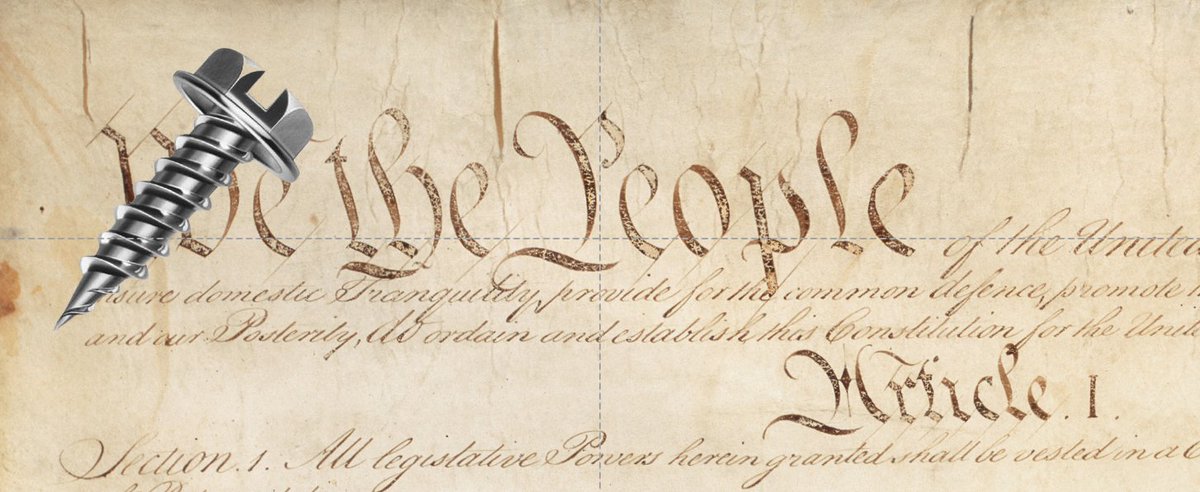 We the People of the United
insure domestic Tranquility, provide for the common defence, promote
and our Posterity, do ordain and establish this Constitution for the Unit
Article. I.
Section. 1. All legislative Powers herein granted shall be vested in a C